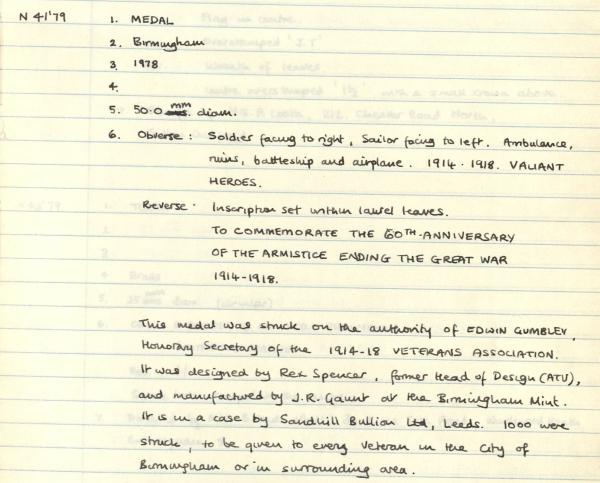 N 41'79
1. MEDAL
2. Birmingham
3. 1978
4.
5. 50.0 mm diam.
6. Obverse : Soldier facing to right, Sailor facing to left. Ambulance,
ruins, battleship and airplane. 1914-1918. VALIANT
HEROES.
Reverse · Inscription set within laurel leaves.
TO COMMEMORATE THE 60TH-ANNIVERSARY
OF THE ARMISTICE ENDING THE GREAT WAR
1914-1918.
This medal was struck on the authority of EDWIN GUMBLEY,
Honorary Secretary of the 1914-18 VETERANS ASSOCIATION.
It was designed by Rex Spencer, former Head of Design (ATV),
and manufactured by J.R. Gaunt at the Birmingham Mint.
It is in a case by Sandhill Bullion Ltd, Leeds. 1000 were
struck, to be given to every veteran in the City of
Birmingham or in surrounding area.